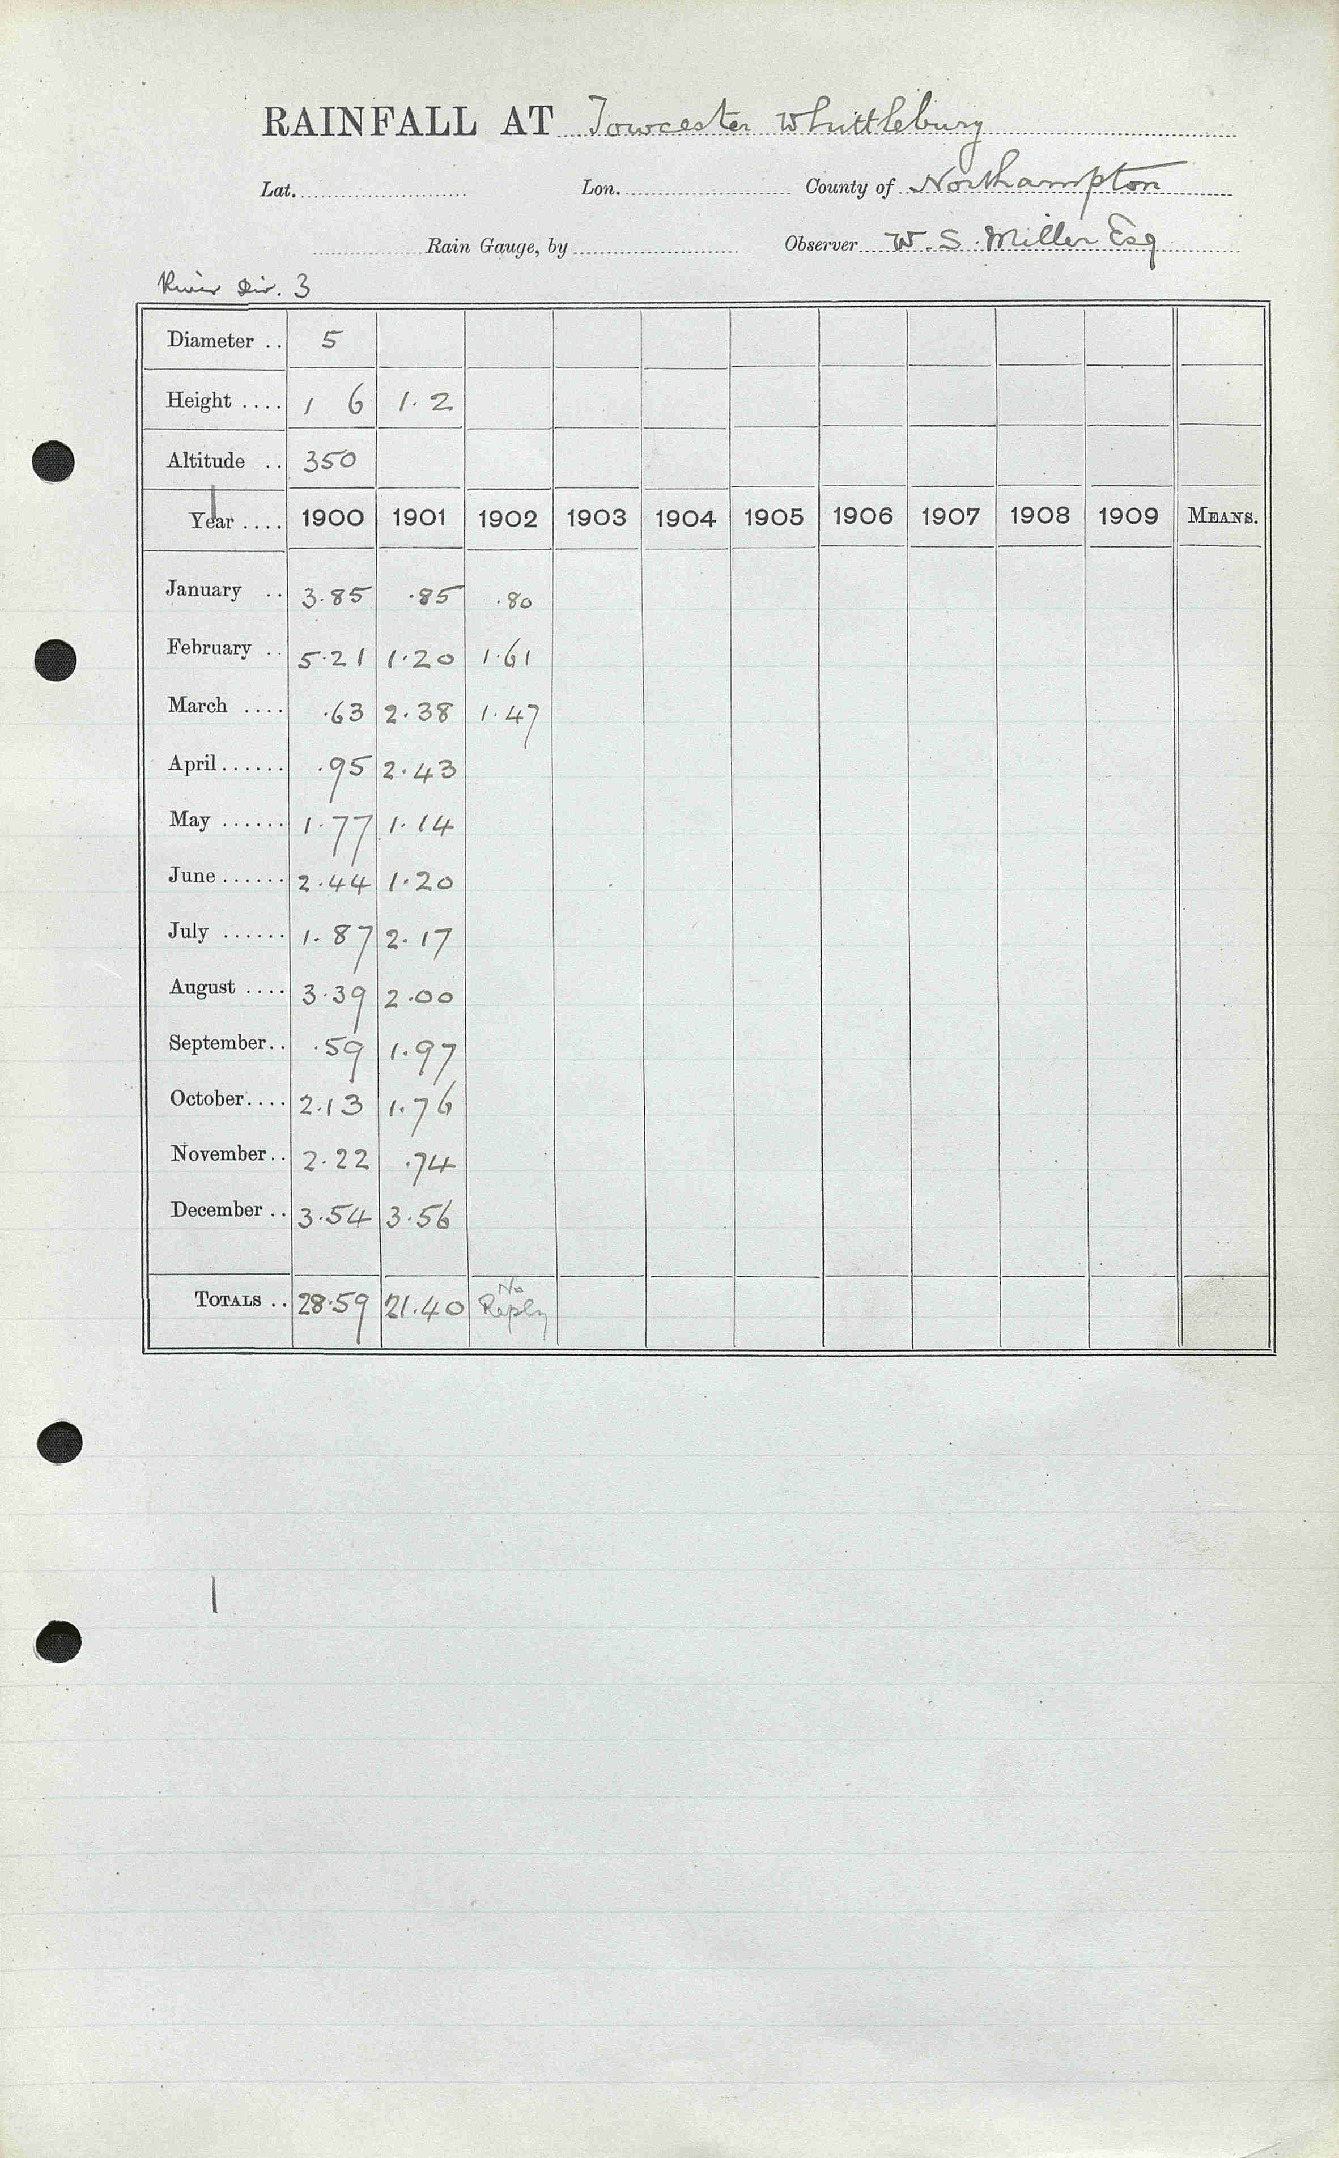 RAINFALL AT Towcester Whittlebury
Lat. Lon. County of Northampton
Rain Gauge, by Observer W. S. Miller Esq
River Div. 3
Diameter .. 5
Height .... 1 6 1.2
Altitude .. 350
Year .... 1900 1901 1902 1903 1904 1905 1906 1907 1908 1909 MEANS.
January .. 3.85 .85 .80
February .. 5.21 1.20 1.61
March .... .63 2.38 1.47
April...... .95 2.43
May ...... 1.77 1.14
June...... 2.44 1.20
July ...... 1.87 2.17
August .... 3.39 2.00
September.. .59 1.97
October.... 2.13 1.76
November.. 2.22 .74
December .. 3.54 3.56
TOTALS .. 28.59 21.40 No
Reply